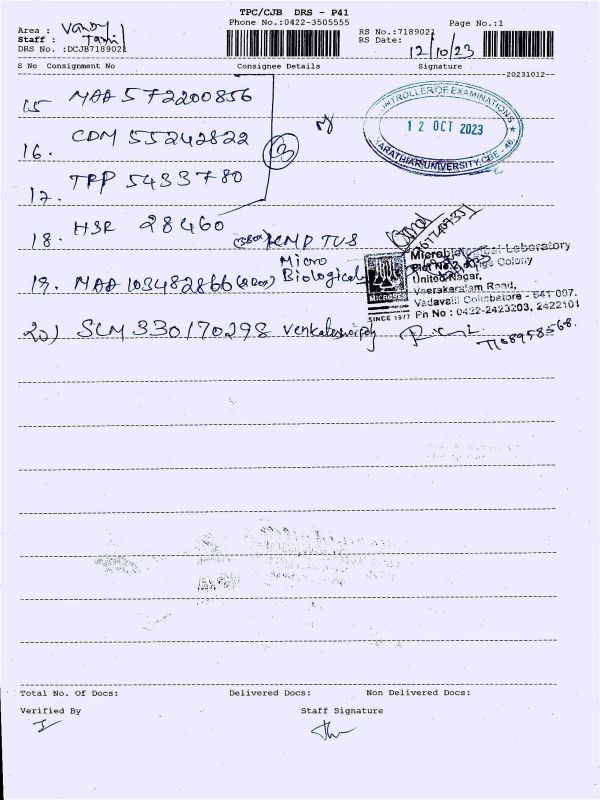 TPC/CJB DRS - P41
Phone No.:0422-3505555
Page No.:1
Area : Vandy
Staff : Tamil
DRS No. :DCJB7189021
RS No.:7189021
RS Date: 12/10/23
S No Consignment No Consignee Details Signature
20231012
15 MAA 572200856
CONTROLLER OF EXAMINATIONS
12 OCT 2023
BHARATHIAR UNIVERSITY, CBE - 46.
16. CDM 55242822
3
17. TPP 5433780
18. HSR 28460
Micro
Biological
Microbiological Laboratory
United Nagar,
Veerakeralam Road,
Vadavalli Coimbatore - 641 007.
Pn No : 0422-2423203, 2422101
MICROBES
SINCE 1977
19. MAA 103482866
20) SLM 330170298
Total No. Of Docs: Delivered Docs: Non Delivered Docs:
Verified By Staff Signature